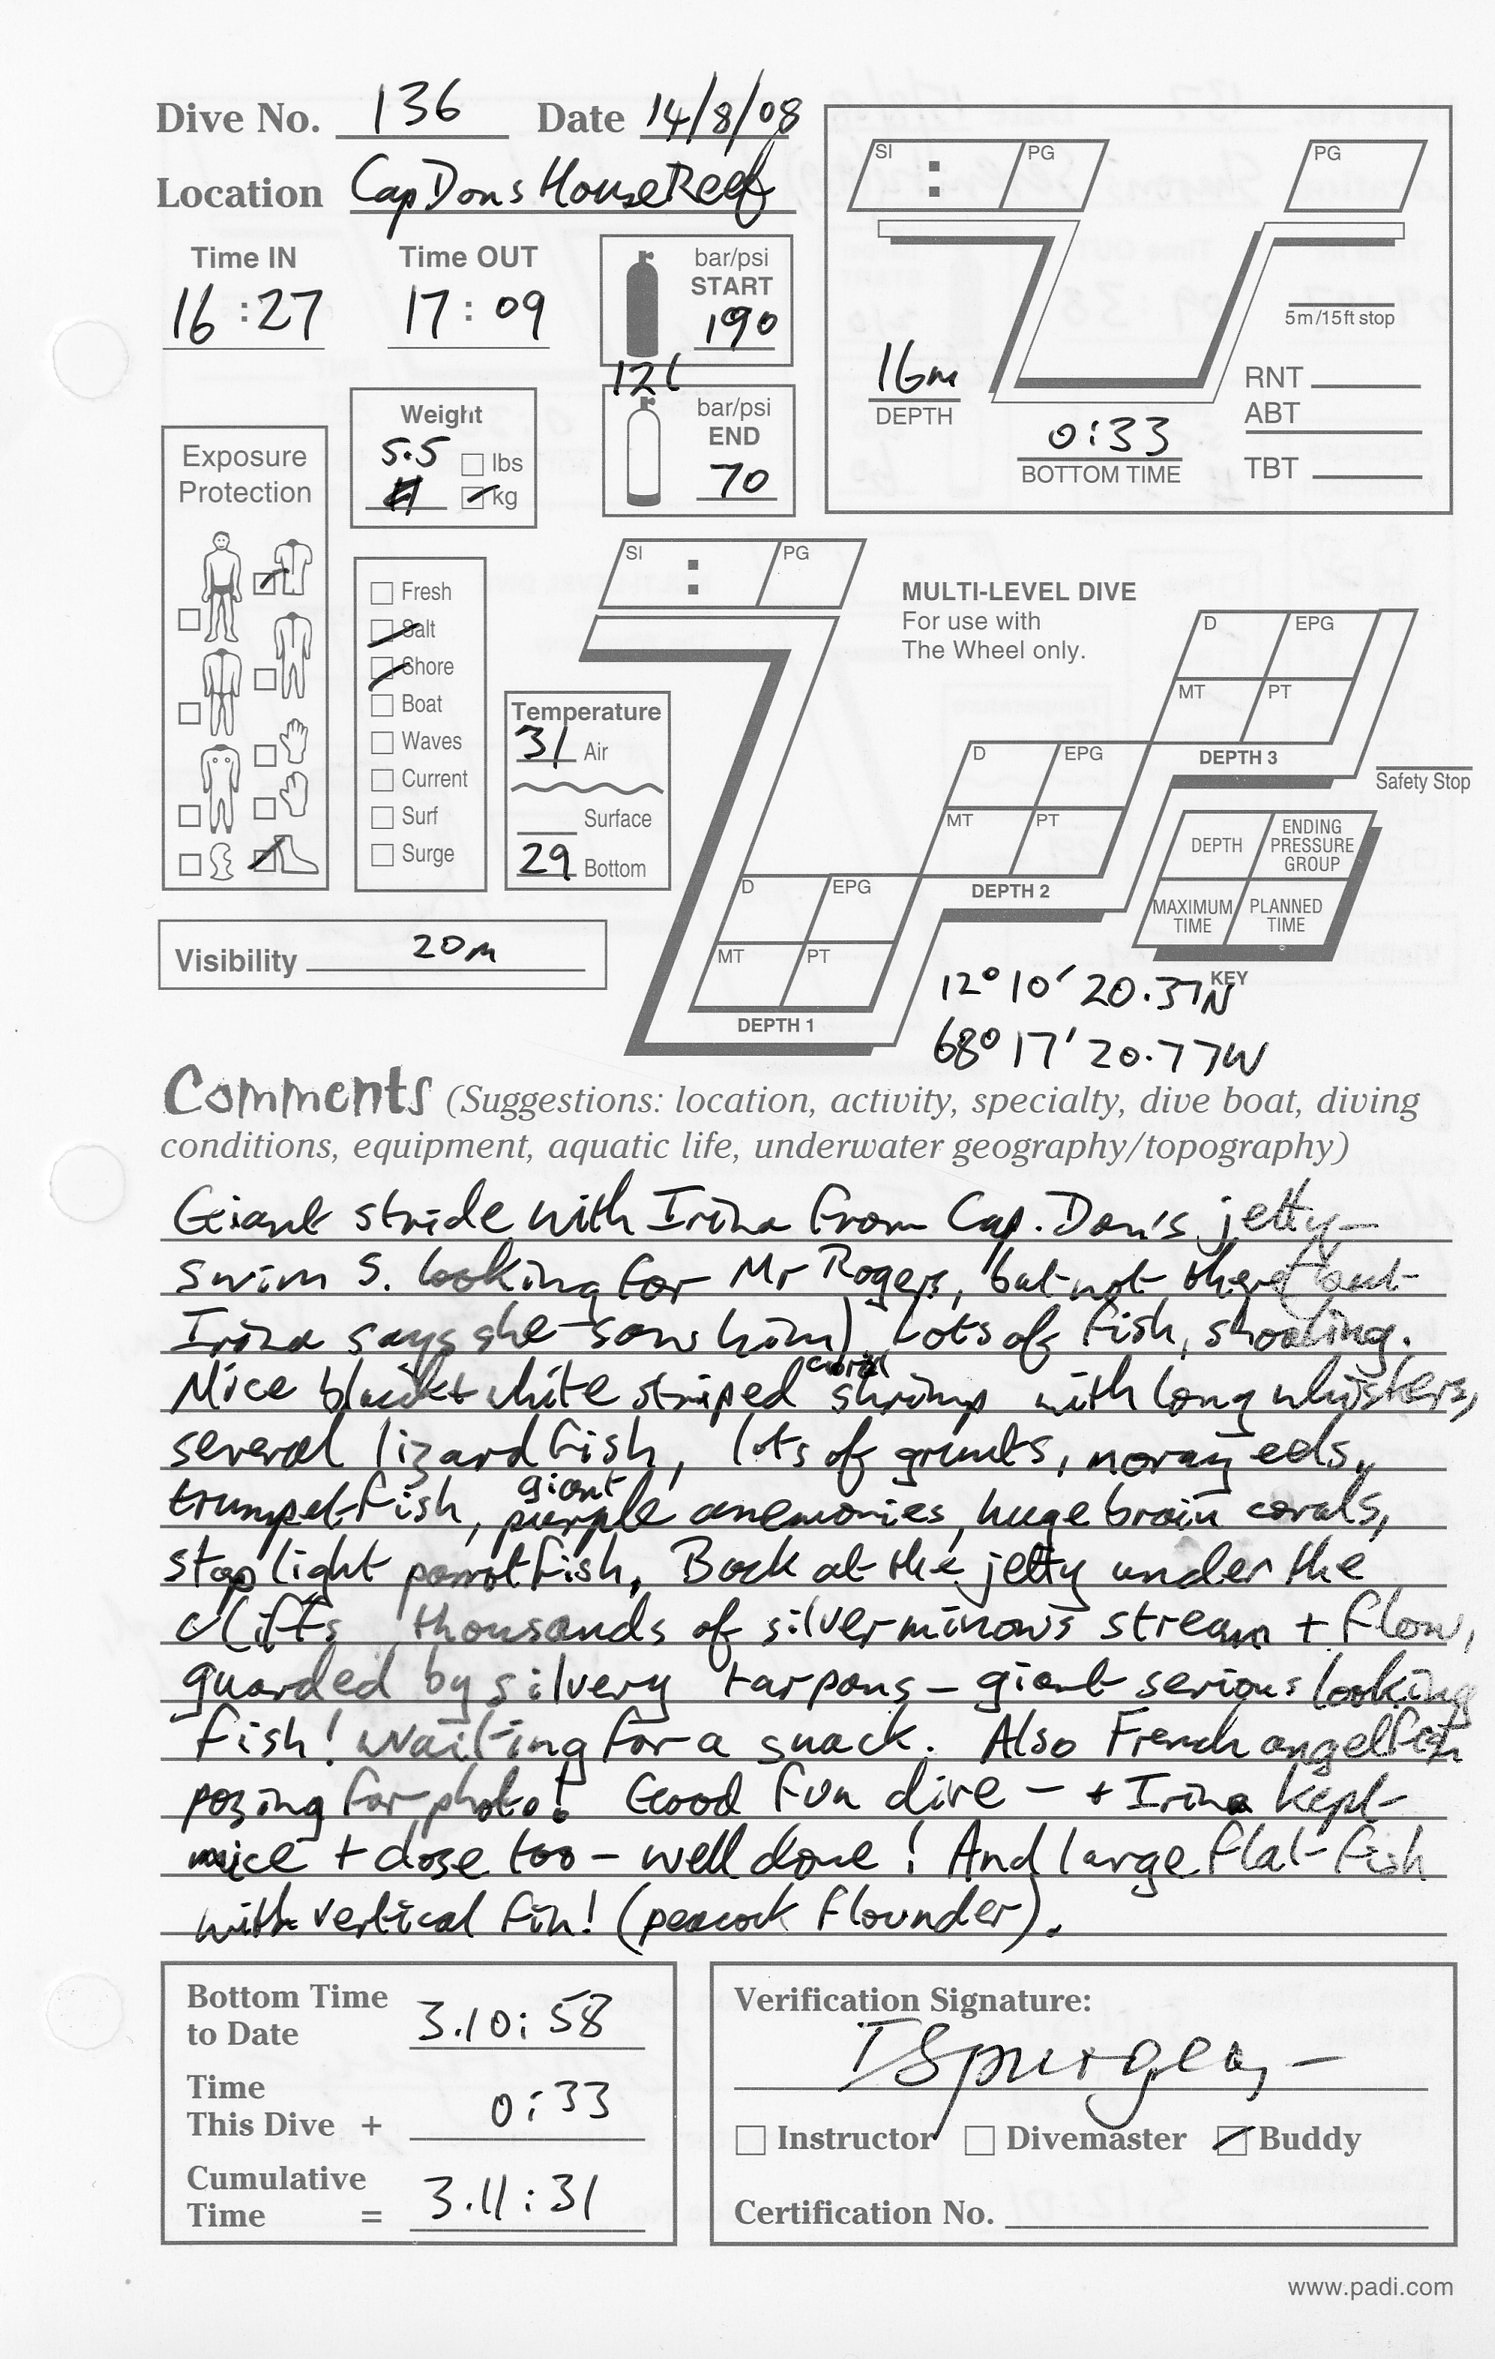 Dive No. 136 Date 14/8/08
Location Cap Dons House Reef
Time IN Time OUT
16:27 17:09
bar/psi
START
190
12l
bar/psi
END
70
SI : PG
PG
5m/15ft stop
16m
DEPTH
0:33
BOTTOM TIME
RNT
ABT
TBT
Weight
5.5
lbs
kg
Exposure
Protection
Fresh
Salt
Shore
Boat
Waves
Current
Surf
Surge
Temperature
31 Air
Surface
29 Bottom
Visibility 20m
SI : PG
MULTI-LEVEL DIVE
For use with
The Wheel only.
D EPG
MT PT
DEPTH 3
Safety Stop
D EPG
MT PT
DEPTH 2
D EPG
MT PT
DEPTH 1
DEPTH
ENDING
PRESSURE
GROUP
MAXIMUM
TIME
PLANNED
TIME
KEY
12° 10' 20.37N
68° 17' 20.77W
Comments (Suggestions: location, activity, specialty, dive boat, diving
conditions, equipment, aquatic life, underwater geography/topography)
Giant stride with Irina from Cap. Don's jetty-
swim S. looking for Mr Rogers, but not there (but
Irina says she saw him) Lots of fish, shoaling.
Nice black + white striped coral shrimp with long whiskers,
several lizardfish, lots of grunts, moray eels,
trumpet-fish, giant purple anemonies, huge brain corals,
stop light parrotfish, Back at the jetty under the
cliffs thousands of silver minows stream + flow,
guarded by silvery tarpons - giant serious looking
fish! Waiting for a snack. Also French angelfish
posing for photo! Good fun dive - + Irina kept
nice + close too - well done! And large flat-fish
with vertical fin! (peacock flounder).
Bottom Time
to Date 3.10:58
Time
This Dive + 0:33
Cumulative
Time = 3.11:31
Verification Signature:
ISpurgeon
Instructor Divemaster Buddy
Certification No.
www.padi.com